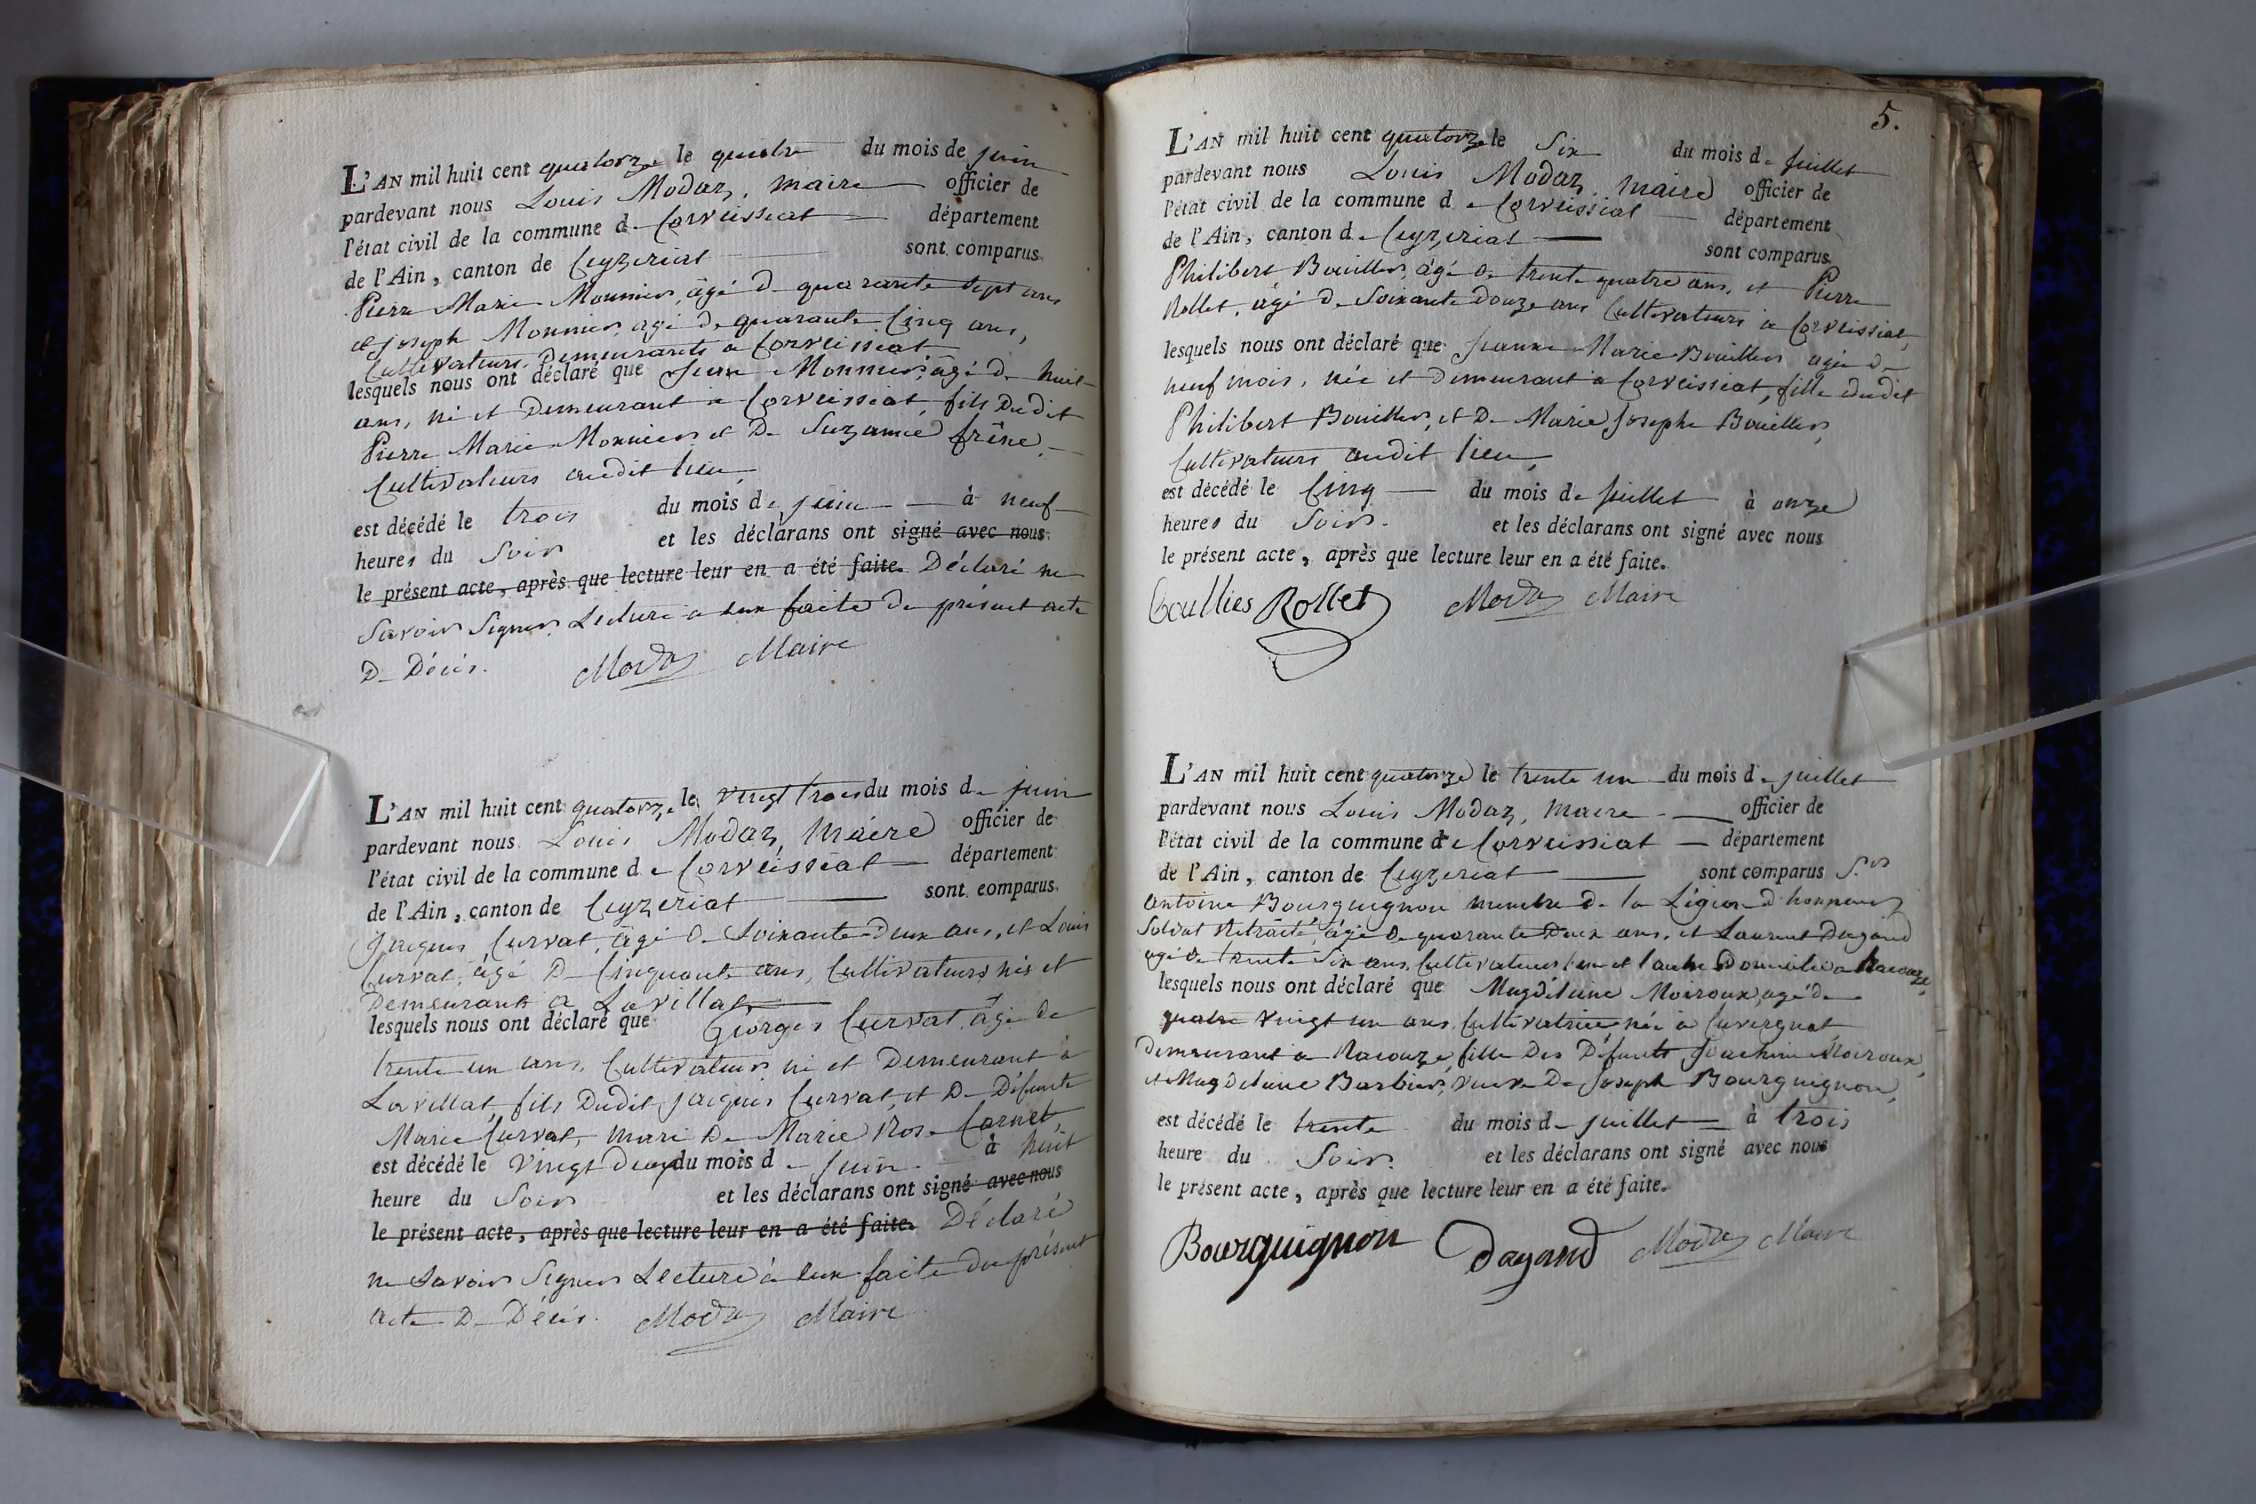 L'AN mil huit cent quatorze le quatre du mois de juin
pardevant nous Louis Modaz, maire officier de
l'état civil de la commune de Corveissiat département
de l'Ain, canton de Ceyzeriat sont comparus
Pierre Marie Monnier, âgé de quarante sept ans
et joseph Monnier, agé de quarante Cinq ans,
Cultivateurs, Demeurants a Corveissiat
lesquels nous ont déclaré que Jean Monnier, âgé de huit
ans, né et Demeurant a Corveissiat, fils Dudit
Pierre Marie Monnier et De Suzanne frêne,
Cultivateurs audit lieu,
est décédé le trois du mois de juin à neuf
heures du Soir et les déclarans ont signé avec nous
le présent acte, après que lecture leur en a été faite. Déclaré ne
Savoir Signer, Lecture a eux faite du présent acte
De Décès. Modaz Maire
L'AN mil huit cent quatorze le vingt trois du mois de juin
pardevant nous Louis Modaz, Maire officier de
l'état civil de la commune de Corveissiat département
de l'Ain, canton de Ceyzeriat sont comparus
Jacques Curvat, âgé de Soixante Deux ans, et Louis
Curvat, âgé De Cinquante ans, Cultivateurs nés et
Demeurant a Lavillat
lesquels nous ont déclaré que Georges Curvat, âgé de
trente un ans, Cultivateur né et Demeurant à
Lavillat, fils Dudit jacques Curvat, et De Défunte
Marie Curvat, mari De Marie Rose Carnet,
est décédé le vingt Deux du mois de juin à huit
heure du Soir et les déclarans ont signé avec nous
le présent acte, après que lecture leur en a été faite. Déclaré
ne Savoir Signer Lecture à eux faite du présent
acte De Décès. Modaz Maire
5.
L'AN mil huit cent quatorze le Six du mois de juillet
pardevant nous Louis Modaz, Maire officier de
l'état civil de la commune de Corveissiat département
de l'Ain, canton de Ceyzeriat sont comparus
Philibert Bouiller, âgé de trente quatre ans, et Pierre
Rollet, âgé de Soixante Douze ans Cultivateurs a Corveissiat,
lesquels nous ont déclaré que jeanne Marie Bouiller agée de
neuf mois, née et demeurant a Corveissiat, fille dudit
Philibert Bouiller, et De Marie Josephe Bouiller,
Cultivateurs audit lieu,
est décédé le Cinq du mois de juillet à onze
heures du Soir. et les déclarans ont signé avec nous
le présent acte, après que lecture leur en a été faite.
Rollet Modaz Maire
L'AN mil huit cent quatorze le trente un du mois de juillet
pardevant nous Louis Modaz, maire officier de
l'état civil de la commune de Corveissiat département
de l'Ain, canton de Ceyzeriat sont comparus S.rs
antoine Bourguignon membre de la Légion d'honneur
Soldat Retraité, âgé de quarante Deux ans, et Laurent Dagand
agé de trente Six ans, Cultivateurs l'un et l'autre Domiciliés a Racouze,
lesquels nous ont déclaré que Magdelaine Moiroux, agé de
quatre vingt un ans Cultivatrice née à Cuvergnat
demeurant a Racouze, fille Des Défunts Joachim Moiroux,
et Magdelaine Barbier, veuve De Joseph Bourguignon,
est décédé le trente du mois de juillet à trois
heure du Soir. et les déclarans ont signé avec nous
le présent acte, après que lecture leur en a été faite.
Bourguignon Dagand Modaz Maire